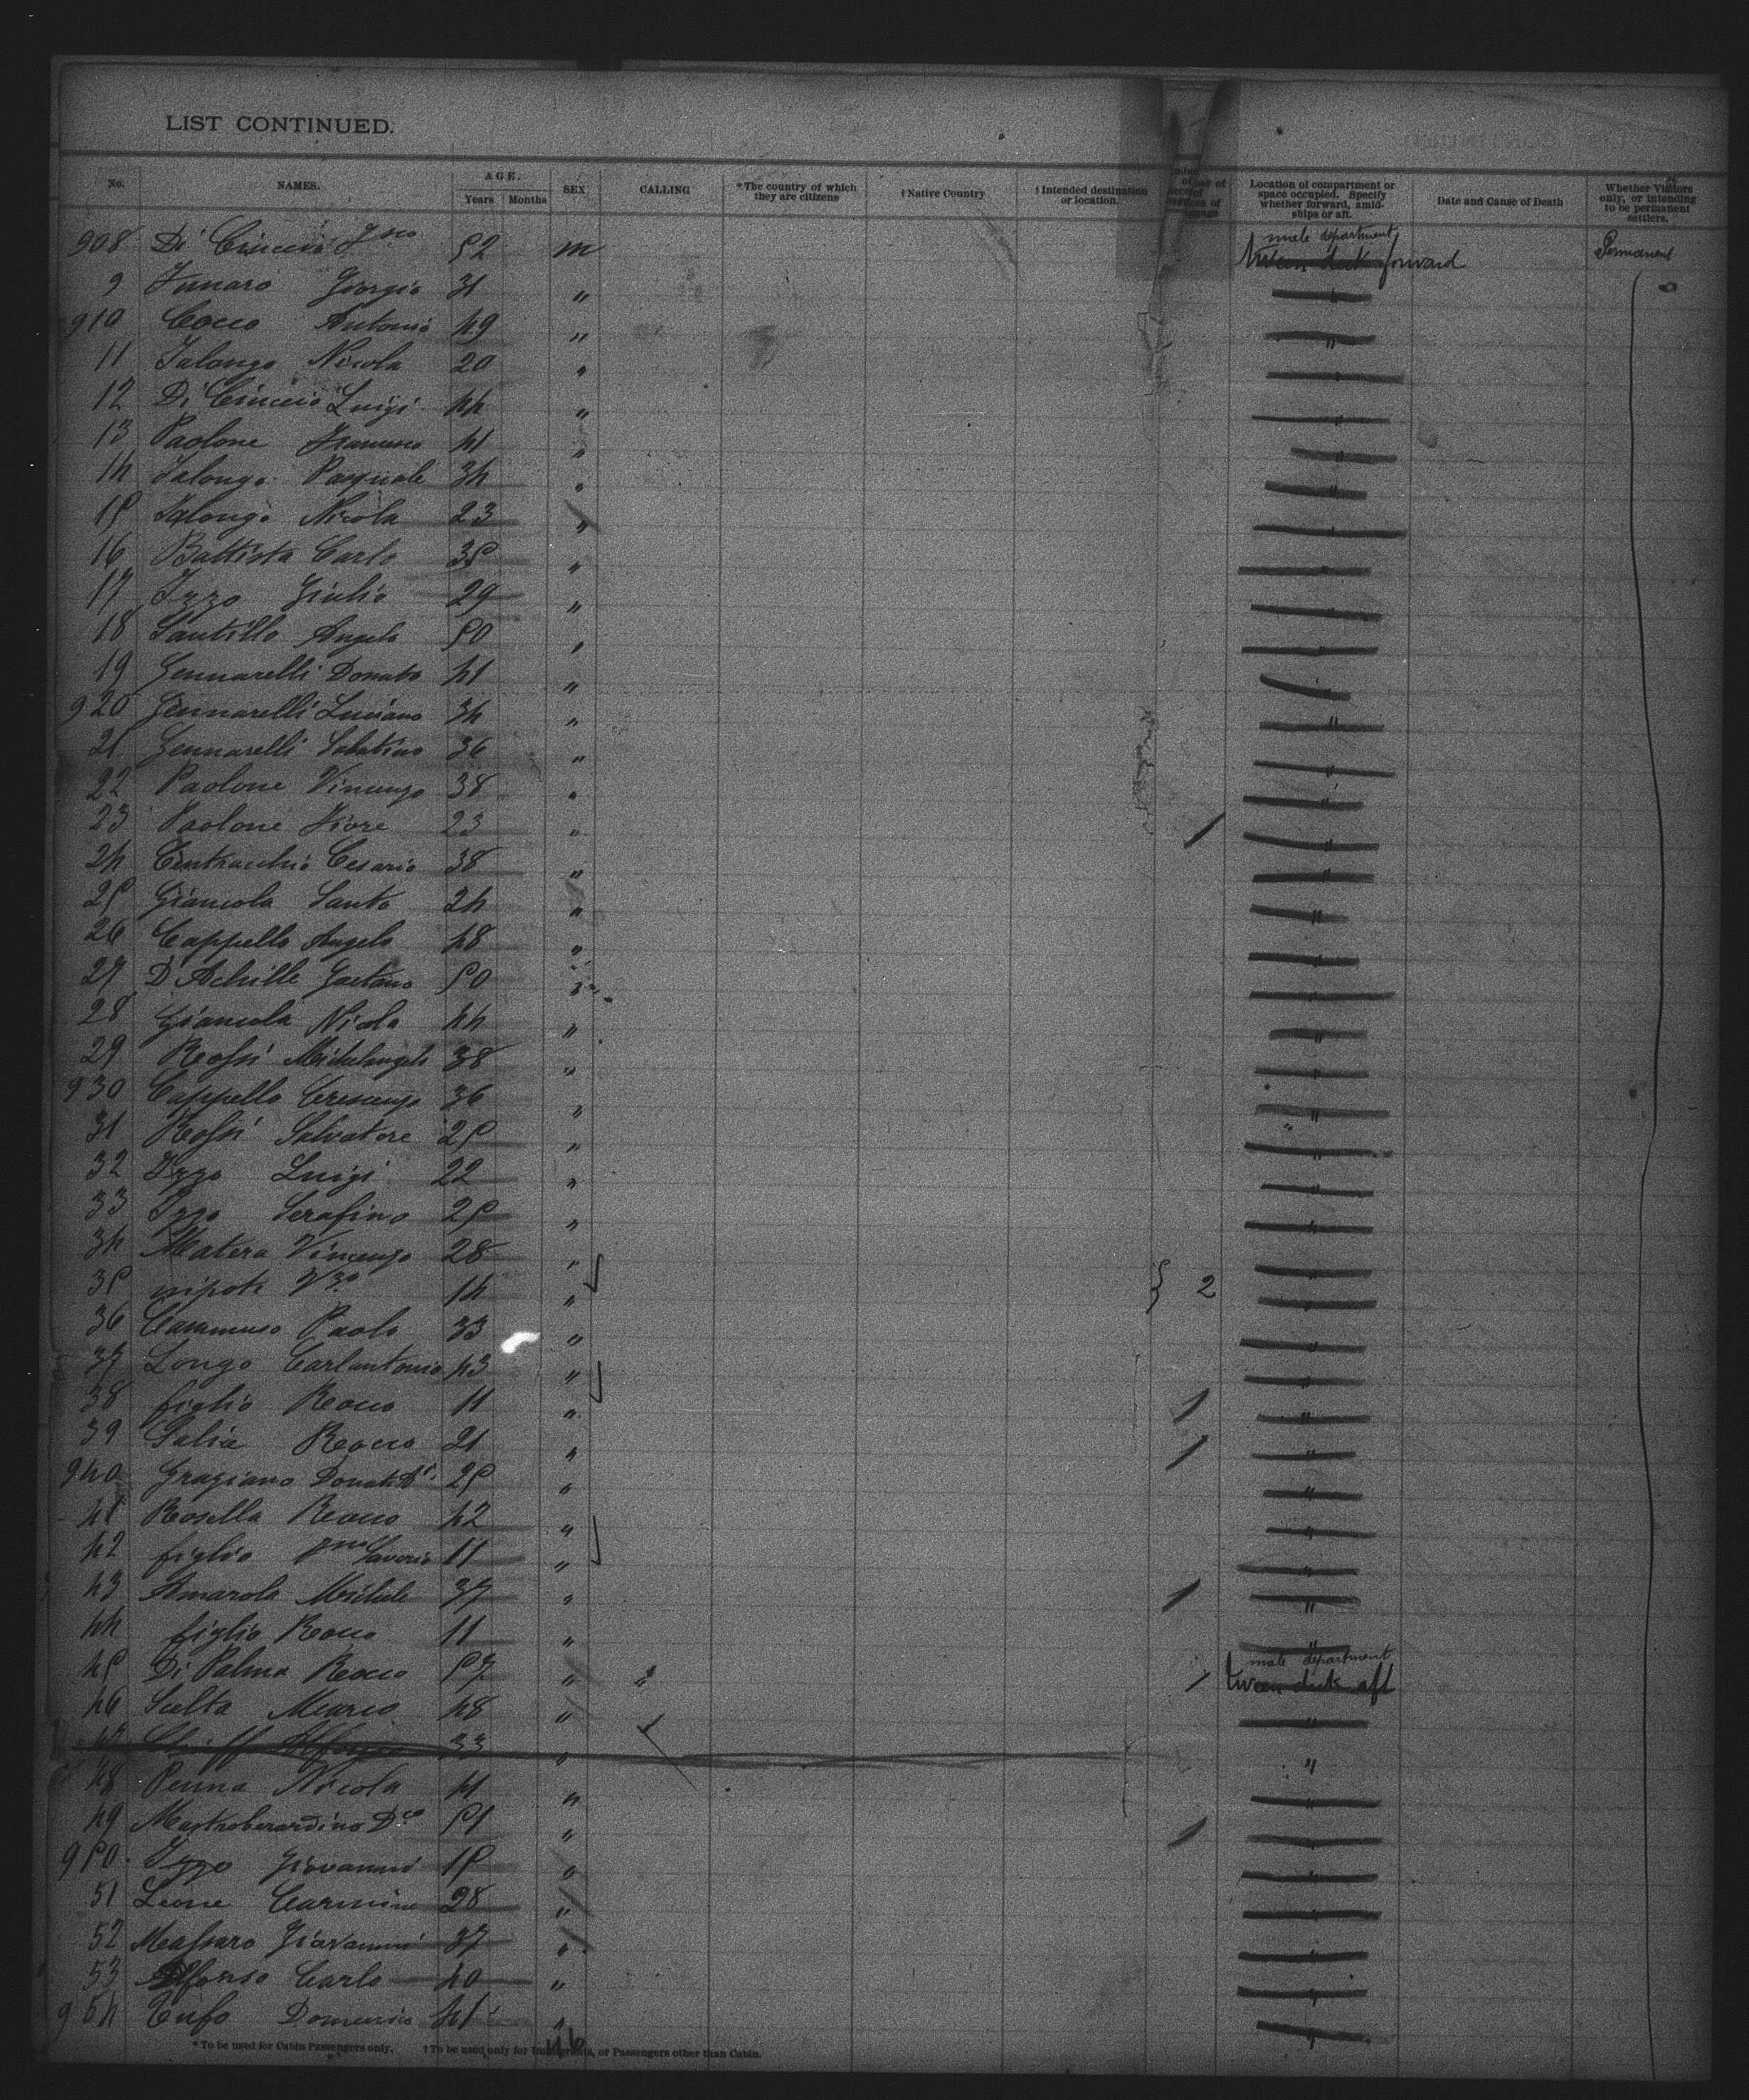 LIST CONTINUED.
No. NAMES. AGE. Years Months SEX CALLING *The country of which they are citizens † Native Country † Intended destination or location. Location of compartment or space occupied. Specify whether forward, amidships or aft. Date and Cause of Death Whether Visitors only, or intending to be permanent settlers.
908 Di Cinccio 52 m male department tween deck forward Permanent
9 Funaro Giorgio 31 " "
910 Cocco Antonio 49 " "
11 Ialongo Nicola 20 " "
12 Di Cinccio Luigi 44 " "
13 Paolone Francesco 41 " "
14 Ialongo Pasquale 34 " "
15 Ialongo Nicola 23 " "
16 Battista Carlo 35 " "
17 Izzo Giulio 29 " "
18 Santillo Angelo 50 " "
19 Gennarelli Donato 41 " "
920 Gennarelli Luciano 34 " "
21 Gennarelli Sabatino 36 " "
22 Paolone Vincenzo 38 " "
23 Paolone Fiore 23 " "
24 Centracchio Cesario 38 " "
25 Giancola Santo 24 " "
26 Cappello Angelo 48 " "
27 D'Achille Gaetano 50 " "
28 Giancola Nicola 44 " "
29 Rossi Michelangelo 38 " "
930 Cappello Crescenzo 36 " "
31 Rossi Salvatore 25 " "
32 Izzo Luigi 22 " "
33 Izzo Serafino 25 " "
34 Matera Vincenzo 28 " "
35 nipote Vzo 14 " } 2 "
36 Cammuso Paolo 33 " "
37 Longo Carlantonio 43 " "
38 figlio Rocco 11 " "
39 Salia Rocco 21 " "
940 Graziano Donato 25 " "
41 Rosella Rocco 42 " "
42 figlio Saverio 11 " "
43 Amarola Michele 37 " "
44 figlio Rocco 11 " "
45 Di Palma Rocco 57 " male department tween deck aft
46 Scelta Marco 48 " "
47 33 " "
48 Penna Nicola 41 " "
49 Mastroberardino Dco 51 " "
950 Izzo Giovanni 15 " "
51 Leone Carmine 28 " "
52 Massaro Giovanni 37 " "
53 Alfonso Carlo 40 " "
954 Tufo Domenico 41 " "
* To be used for Cabin Passengers only. † To be used only for Immigrants, or Passengers other than Cabin.